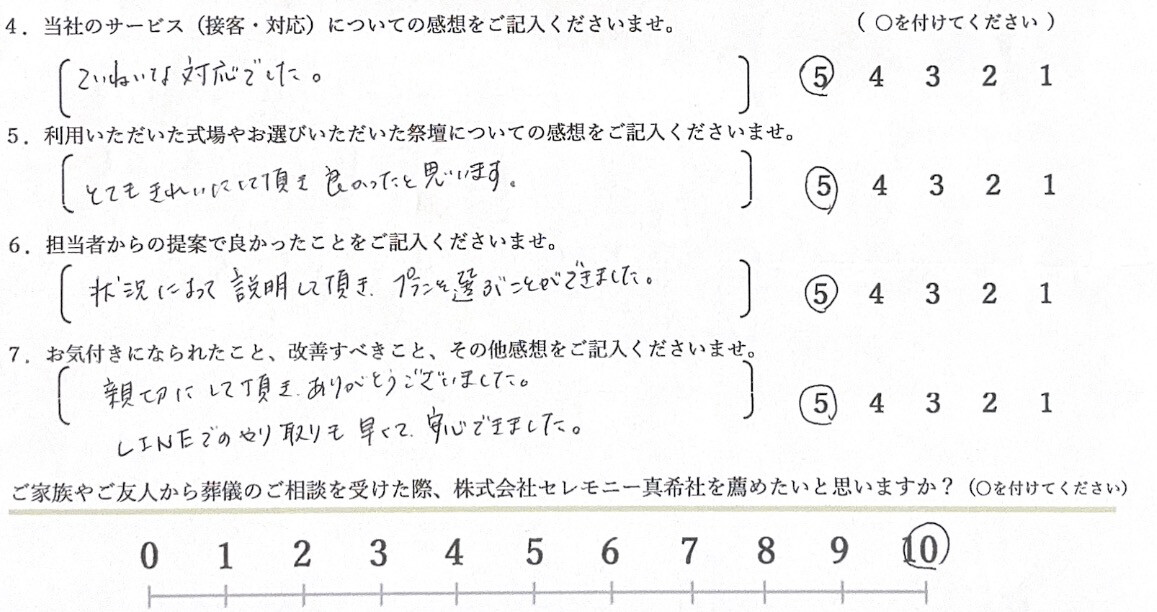 4．当社のサービス（接客・対応）についての感想をご記入くださいませ。　（ ○を付けてください ）
ていねいな対応でした。　5　4　3　2　1
5．利用いただいた式場やお選びいただいた祭壇についての感想をご記入くださいませ。
とてもきれいにして頂き良かったと思います。　5　4　3　2　1
6．担当者からの提案で良かったことをご記入くださいませ。
状況によって説明して頂き、プランを選ぶことができました。　5　4　3　2　1
7．お気付きになられたこと、改善すべきこと、その他感想をご記入くださいませ。
親切にして頂き、ありがとうございました。　5　4　3　2　1
LINEでのやり取りも早くて、安心できました。
ご家族やご友人から葬儀のご相談を受けた際、株式会社セレモニー真希社を薦めたいと思いますか？（○を付けてください）
0　1　2　3　4　5　6　7　8　9　10